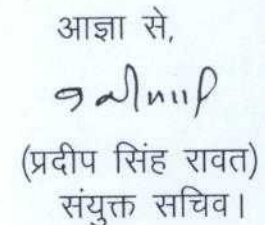 आज्ञा से,
(प्रदीप सिंह रावत)
संयुक्त सचिव।